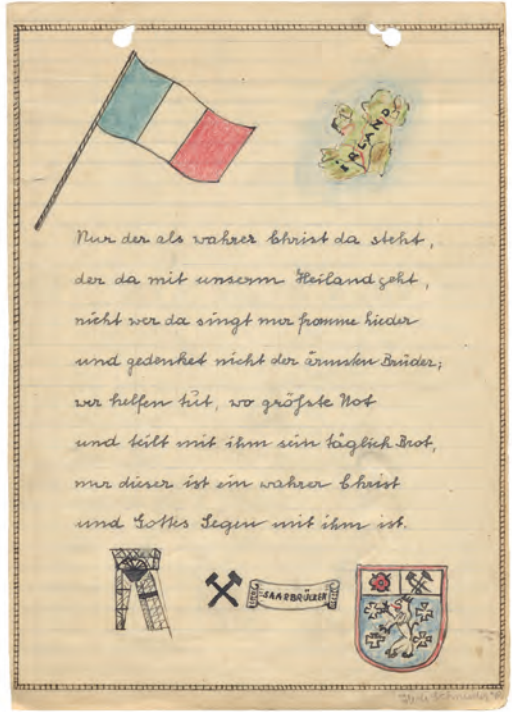 IRLAND
Nur der als wahrer Christ da steht,
der da mit unserm Heiland geht,
nicht wer da singt nur fromme Lieder
und gedenket nicht der ärmsten Brüder;
wer helfen tut, wo größte Not
und teilt mit ihm sein täglich Brot,
nur dieser ist ein wahrer Christ
und Gottes Segen mit ihm ist.
SAARBRÜCKEN
Schneider